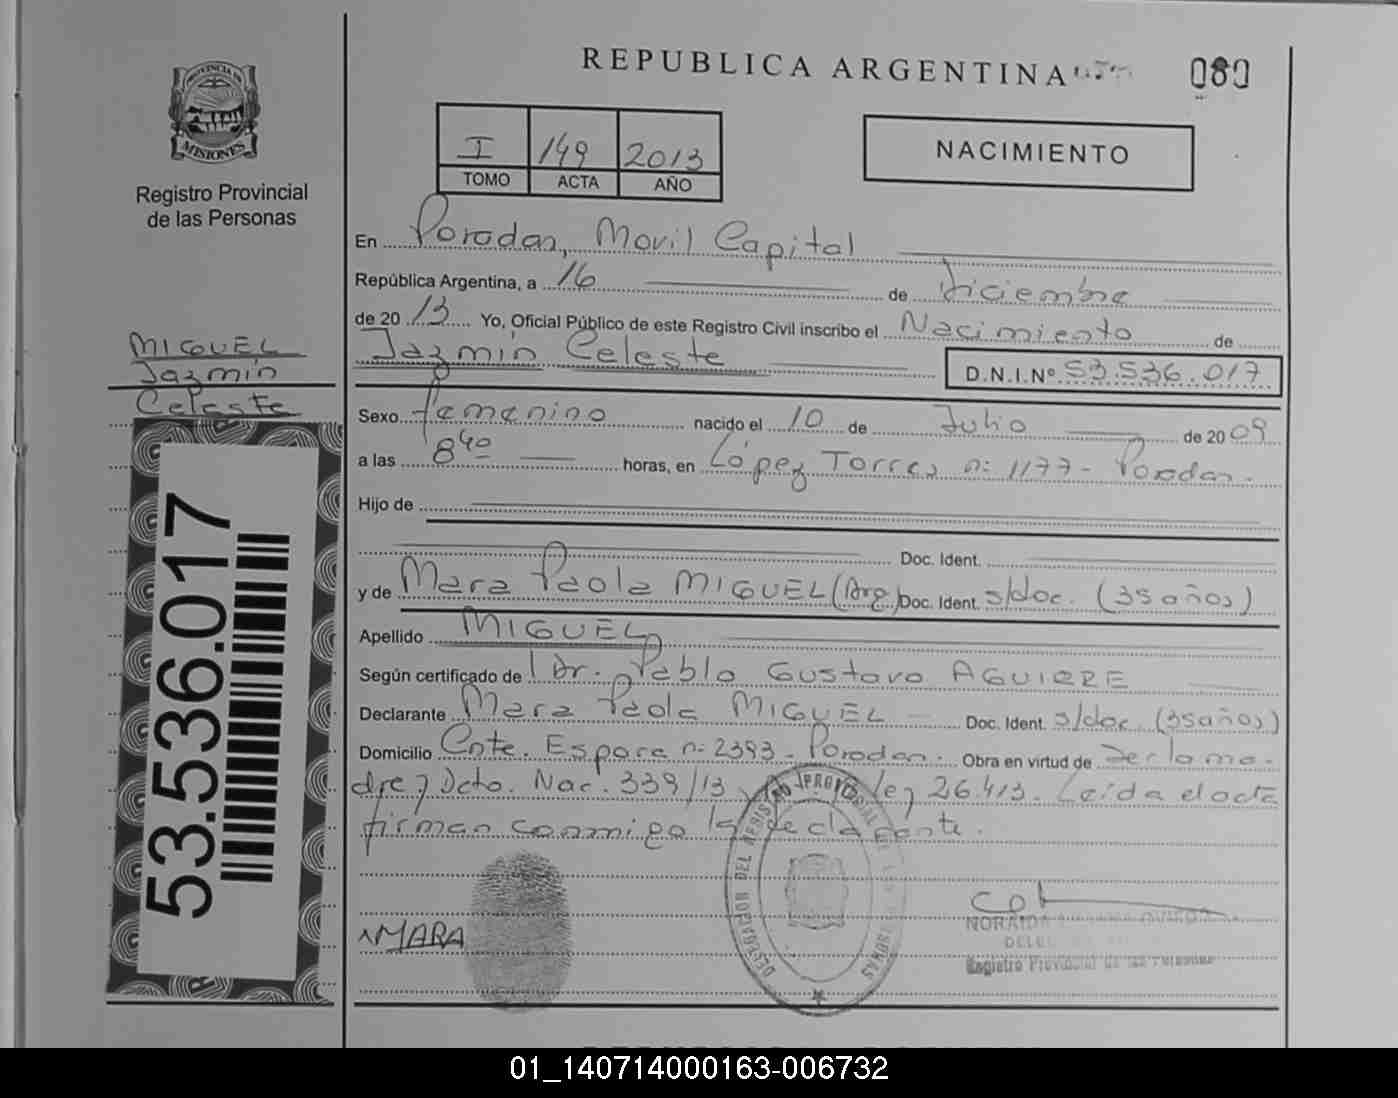 REPUBLICA ARGENTINA
080
PROVINCIA DE
MISIONES
Registro Provincial
de las Personas
I 149 2013
TOMO ACTA AÑO
NACIMIENTO
En Posadas, Movil Capital
República Argentina, a 16 de Diciembre
de 2013 Yo, Oficial Público de este Registro Civil inscribo el Nacimiento de
Jazmín Celeste
D.N.I.Nº 53.536.017
MIGUEL
Jazmín
Celeste
Sexo Femenino nacido el 10 de Julio de 2009
a las 8 40 horas, en López Torres n: 1177- Posadas.
Hijo de
Doc. Ident.
y de Mara Paola MIGUEL (Arg) Doc. Ident. s/doc. (35 años)
Apellido MIGUEL
Según certificado de Dr. Pablo Gustavo AGUIRRE
Declarante Mara Paola MIGUEL Doc. Ident. s/doc. (35 años)
Domicilio Cnte. Espora n: 2393- Posadas. Obra en virtud de Decl. a ma-
dre y Dcto. Nac. 339/13 y ley 26.413. Leída el acta
firman conmigo la declarante.
53.536.017
MARA
DELEGACION DEL REGISTRO PROVINCIAL DE LAS PERSONAS
Registro Provincial de las Personas
01_140714000163-006732